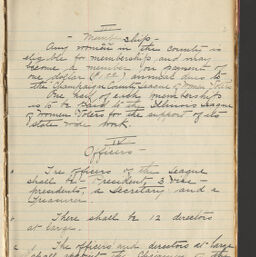 III
- Membership -
Any women in the county is
eligible for membership, and may
become a member on payment of
one dollar ($1.00) annual dues to
the Champaign County League of Women Voters
One half of each membership
is to be paid to the Illinois League
of Women Voters for the support of its
state wide work.
IV
Officers -
The officers of the League
shall be - President, 3 Vice -
presidents, a Secretary and a
Treasurer.
There shall be 12 directors
at large.
1. The officers and directors at large
shall appoint the Chairmen of the